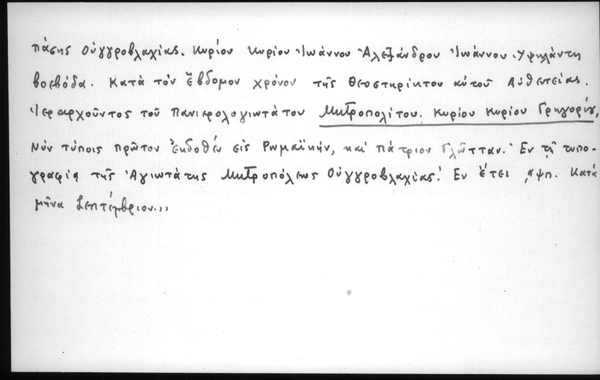 πάσης Οὐγγροβλαχίας. Κυρίου Κυρίου Ἰωάννου Ἀλεξάνδρου Ἰωάννου Ὑψηλάντη
βοεβόδα. Κατὰ τὸν ἕβδομον χρόνον τῆς θεοστηρίκτου αὐτοῦ Αὐθεντείας.
Ἱεραρχοῦντος τοῦ Πανιερολογιωτάτου Μητροπολίτου. Κυρίου Κυρίου Γρηγορίου,
Νῦν τύποις πρῶτον ἐκδοθὲν εἰς Ῥωμαϊκήν, καὶ πάτριον Γλῶτταν. Ἐν τῇ τυπο-
γραφίᾳ τῆς Ἁγιωτάτης Μητροπόλεως Οὐγγροβλαχίας. Ἐν ἔτει ͵αψπ. Κατὰ
μῆνα Σεπτέμβριον.,,